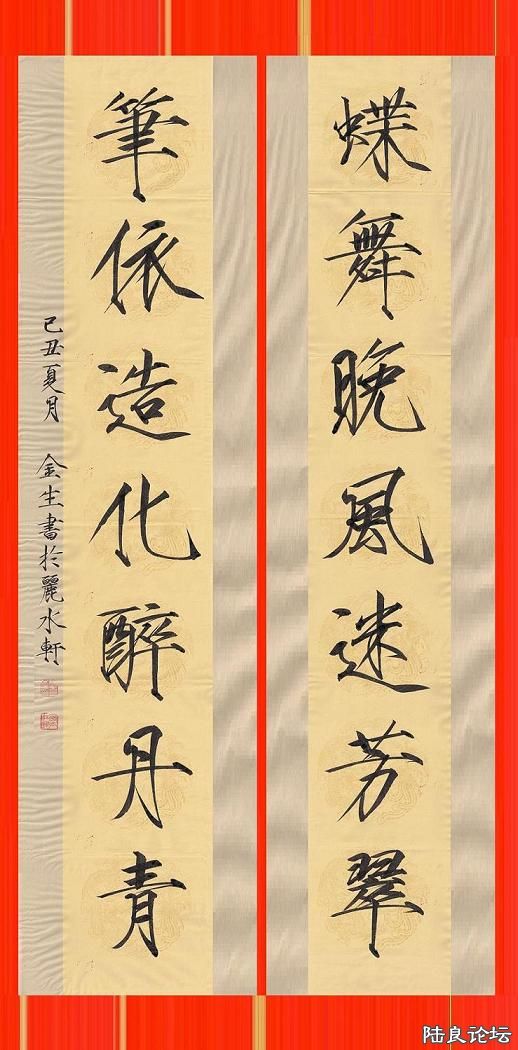 蝶舞晚風迷芳翠
筆依造化醉丹青
己丑夏月 金生書於麗水軒
陆良论坛